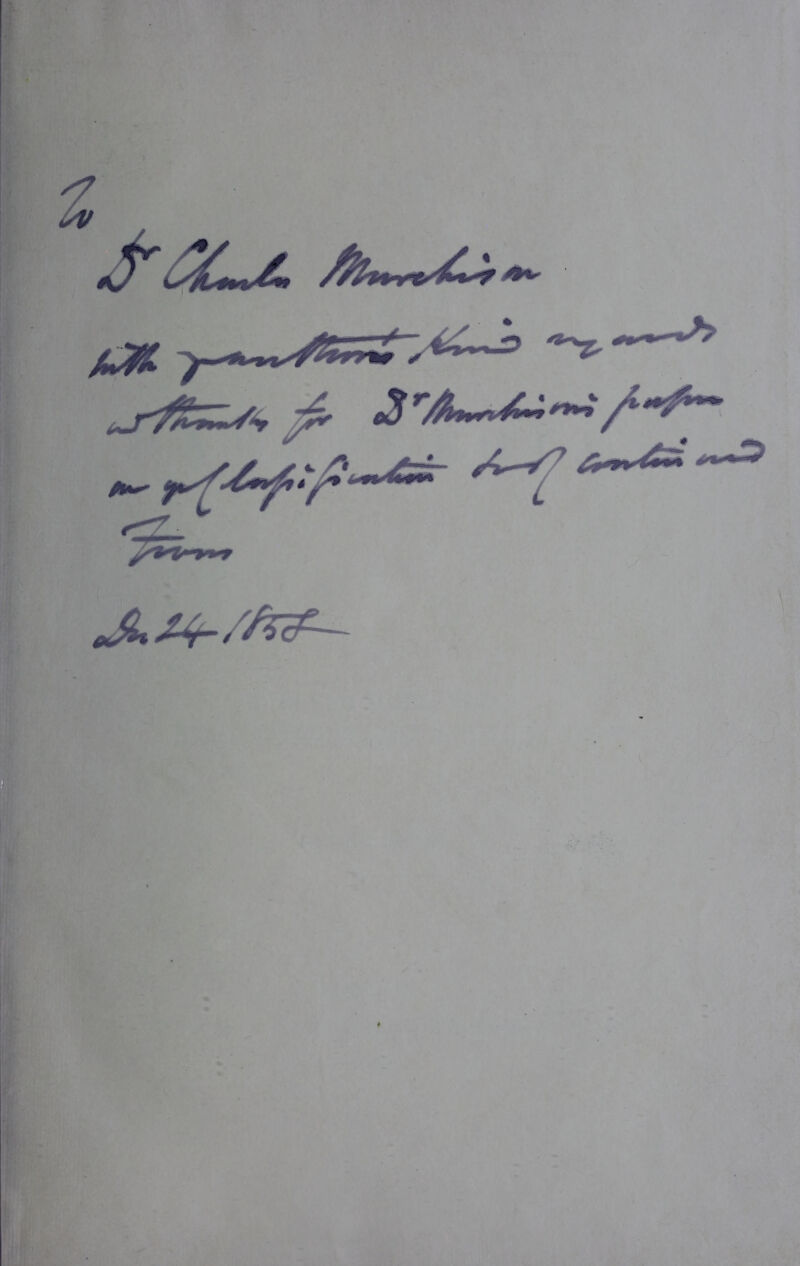 To
Dr Charles Murchison
with ye authors kind regards
& thanks for Dr Murchison's paper
on ye classification of continued
Fevers
Dec 24 1858